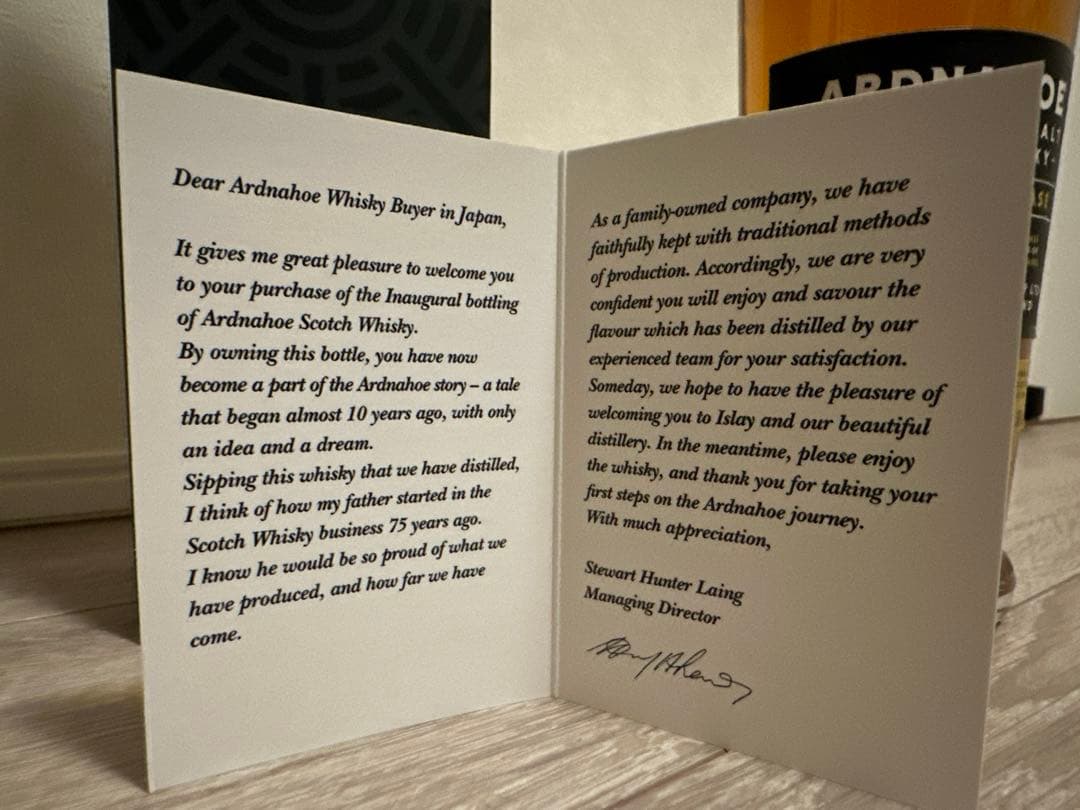 Dear Ardnahoe Whisky Buyer in Japan,
It gives me great pleasure to welcome you
to your purchase of the Inaugural bottling
of Ardnahoe Scotch Whisky.
By owning this bottle, you have now
become a part of the Ardnahoe story – a tale
that began almost 10 years ago, with only
an idea and a dream.
Sipping this whisky that we have distilled,
I think of how my father started in the
Scotch Whisky business 75 years ago.
I know he would be so proud of what we
have produced, and how far we have
come.
As a family-owned company, we have
faithfully kept with traditional methods
of production. Accordingly, we are very
confident you will enjoy and savour the
flavour which has been distilled by our
experienced team for your satisfaction.
Someday, we hope to have the pleasure of
welcoming you to Islay and our beautiful
distillery. In the meantime, please enjoy
the whisky, and thank you for taking your
first steps on the Ardnahoe journey.
With much appreciation,
Stewart Hunter Laing
Managing Director
ARDNAHOE